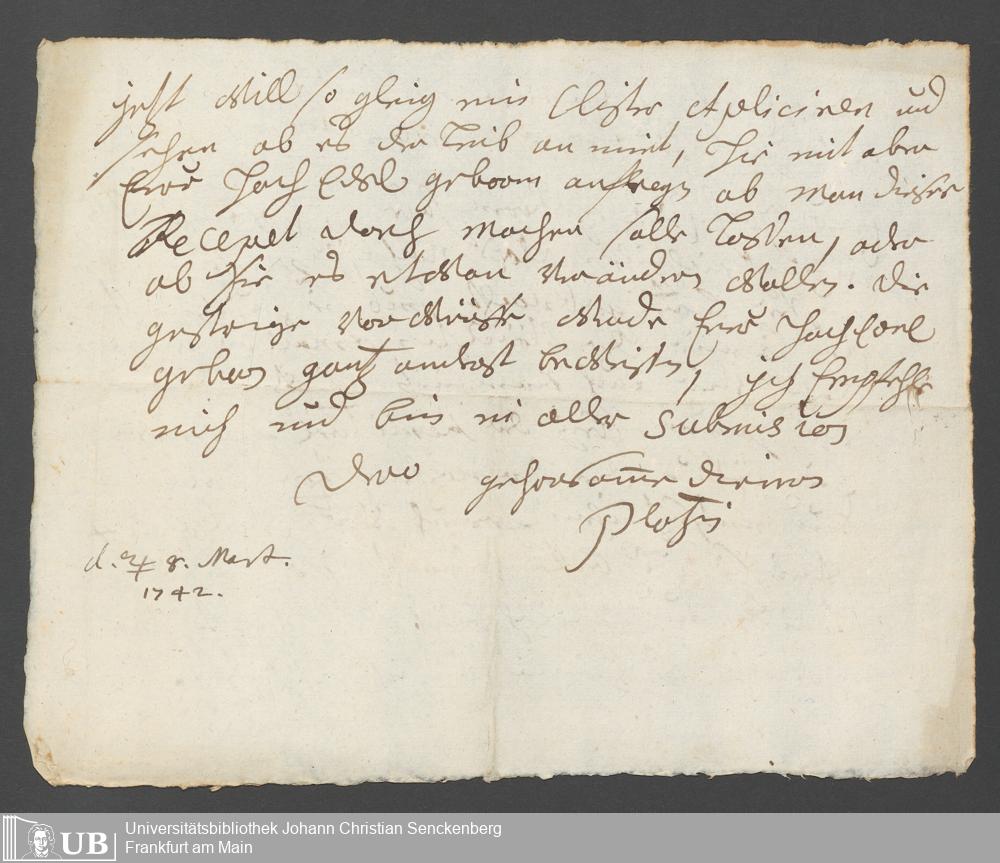 jetzt will so gleig ein Clistir Apliciren und
sehen ob es der Leib an nimt, hie mit aber
Ewr Hoch Edel geborn anfregn ob man dieses
Recepet doch machen solle lassen, oder
ob sie es etwan verändern wollen. die
gestrige wurde Ewr Hoch Edel
geborn gantz bedeisten, ich Empfehle
mich und bin in aller submision
Dero gehorsamme dienrin
d. 8. Mart.
1742.
UB
Universitätsbibliothek Johann Christian Senckenberg
Frankfurt am Main